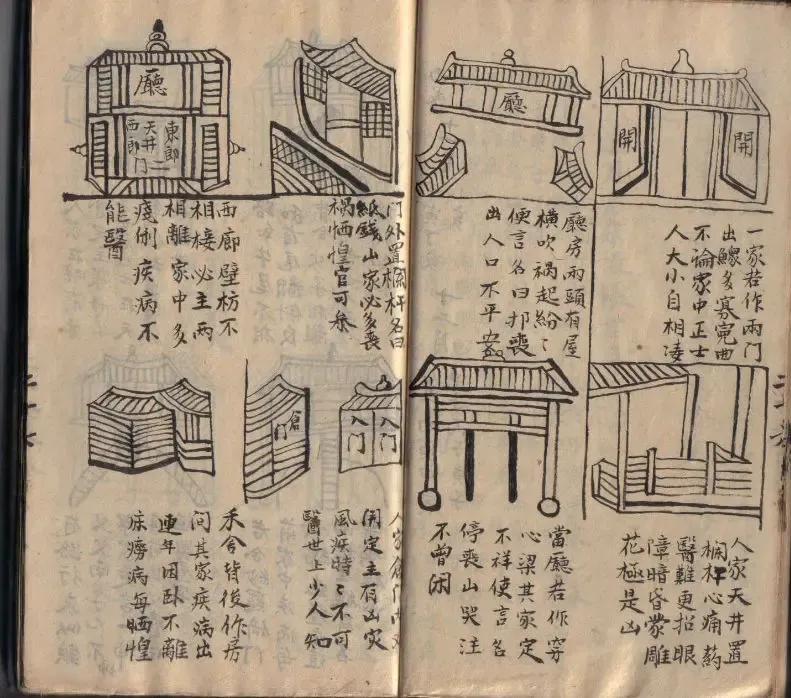 開
開
一家若作兩門
出鰥多寡冤曲
不論家中正士
人大小自相凌
廳
廳房兩頭有屋
橫吹禍起紛〻
便言名曰喪
出人口不平安
人家天井置
欄杆心痛葯
醫難更招眼
障暗昏蒙雕
花極是凶
當廳若作穿
心梁其家定
不祥使言名
停喪山哭注
不曾闲
門外置欄杆名曰
紙錢山家必多喪
禍恓惶官可參
廳
東郎
天井
西郎
门
西廊壁枋不
相接必主兩
相離家中多
疾病不
能醫
入门
入门
倉门
人家倉门
開定主有凶災
風疾時〻不可
醫世上少人知
禾舍背後作房
问其家疾病出
連年困卧不離
床癆病每恓惶